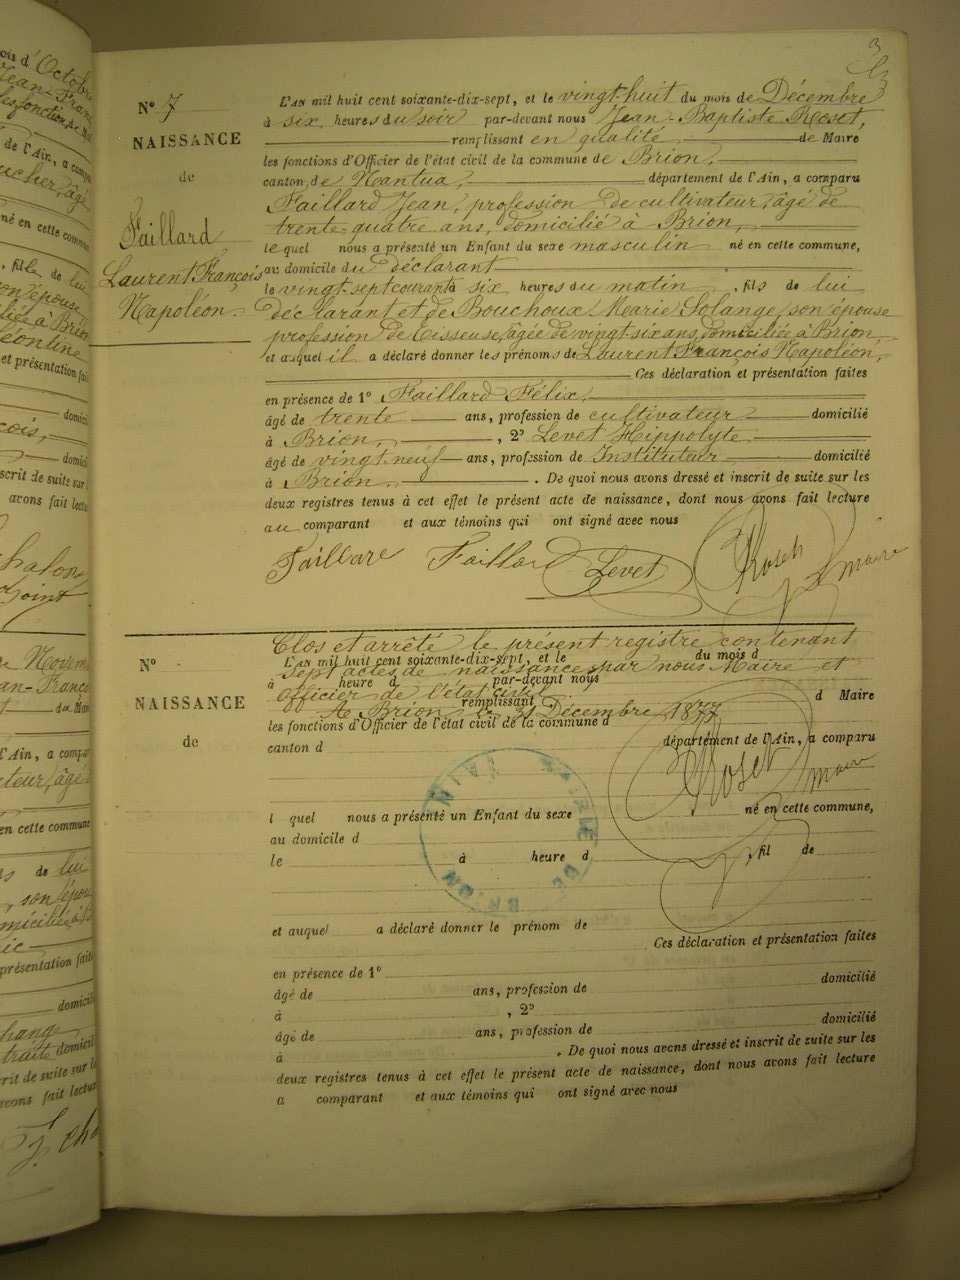 3
N° 7
NAISSANCE
de
Faillard
Laurent François
Napoléon.
L'AN mil huit cent soixante-dix-sept, et le vingt-huit du mois de Décembre
à six heures du soir par-devant nous Jean-Baptiste Roset,
remplissant en qualité de Maire
les fonctions d'Officier de l'état civil de la commune de Brion,
canton de Nantua, département de l'Ain, a comparu
Faillard Jean, profession de cultivateur, âgé de
trente-quatre ans, domicilié à Brion,
lequel nous a présenté un Enfant du sexe masculin né en cette commune,
au domicile du déclarant
le vingt-sept courant à six heures du matin, fils de lui
déclarant et de Bouchoux Marie Solange, son épouse
profession de Tisseuse, âgée de vingt-six ans, domiciliée à Brion,
et auquel il a déclaré donner les prénoms de Laurent François Napoléon,
Ces déclaration et présentation faites
en présence de 1° Faillard Félix,
âgé de trente ans, profession de cultivateur domicilié
à Brion, , 2° Levet Hippolyte
âgé de vingt-neuf ans, profession de Instituteur domicilié
à Brion. . De quoi nous avons dressé et inscrit de suite sur les
deux registres tenus à cet effet le présent acte de naissance, dont nous avons fait lecture
au comparant et aux témoins qui ont signé avec nous
Faillard Faillard Levet JRoset maire
Clos et arrêté le présent registre contenant
N°
L'AN mil huit cent soixante-dix-sept, et le du mois d
sept actes de naissance par nous Maire et
à heure d par-devant nous
officier de l'état civil
NAISSANCE
remplissant d Maire
A Brion le 31 Décembre 1877
les fonctions d'Officier de l'état civil de la commune d
de
canton d département de l'Ain, a comparu
JRoset maire
MAIRIE DE BRION AIN
l quel nous a présenté un Enfant du sexe né en cette commune,
au domicile d
le à heure d , fil de
et auquel a déclaré donner le prénom de
Ces déclaration et présentation faites
en présence de 1°
âgé de ans, profession de domicilié
à , 2°
âgé de ans, profession de domicilié
à . De quoi nous avons dressé et inscrit de suite sur les
deux registres tenus à cet effet le présent acte de naissance, dont nous avons fait lecture
a comparant et aux témoins qui ont signé avec nous